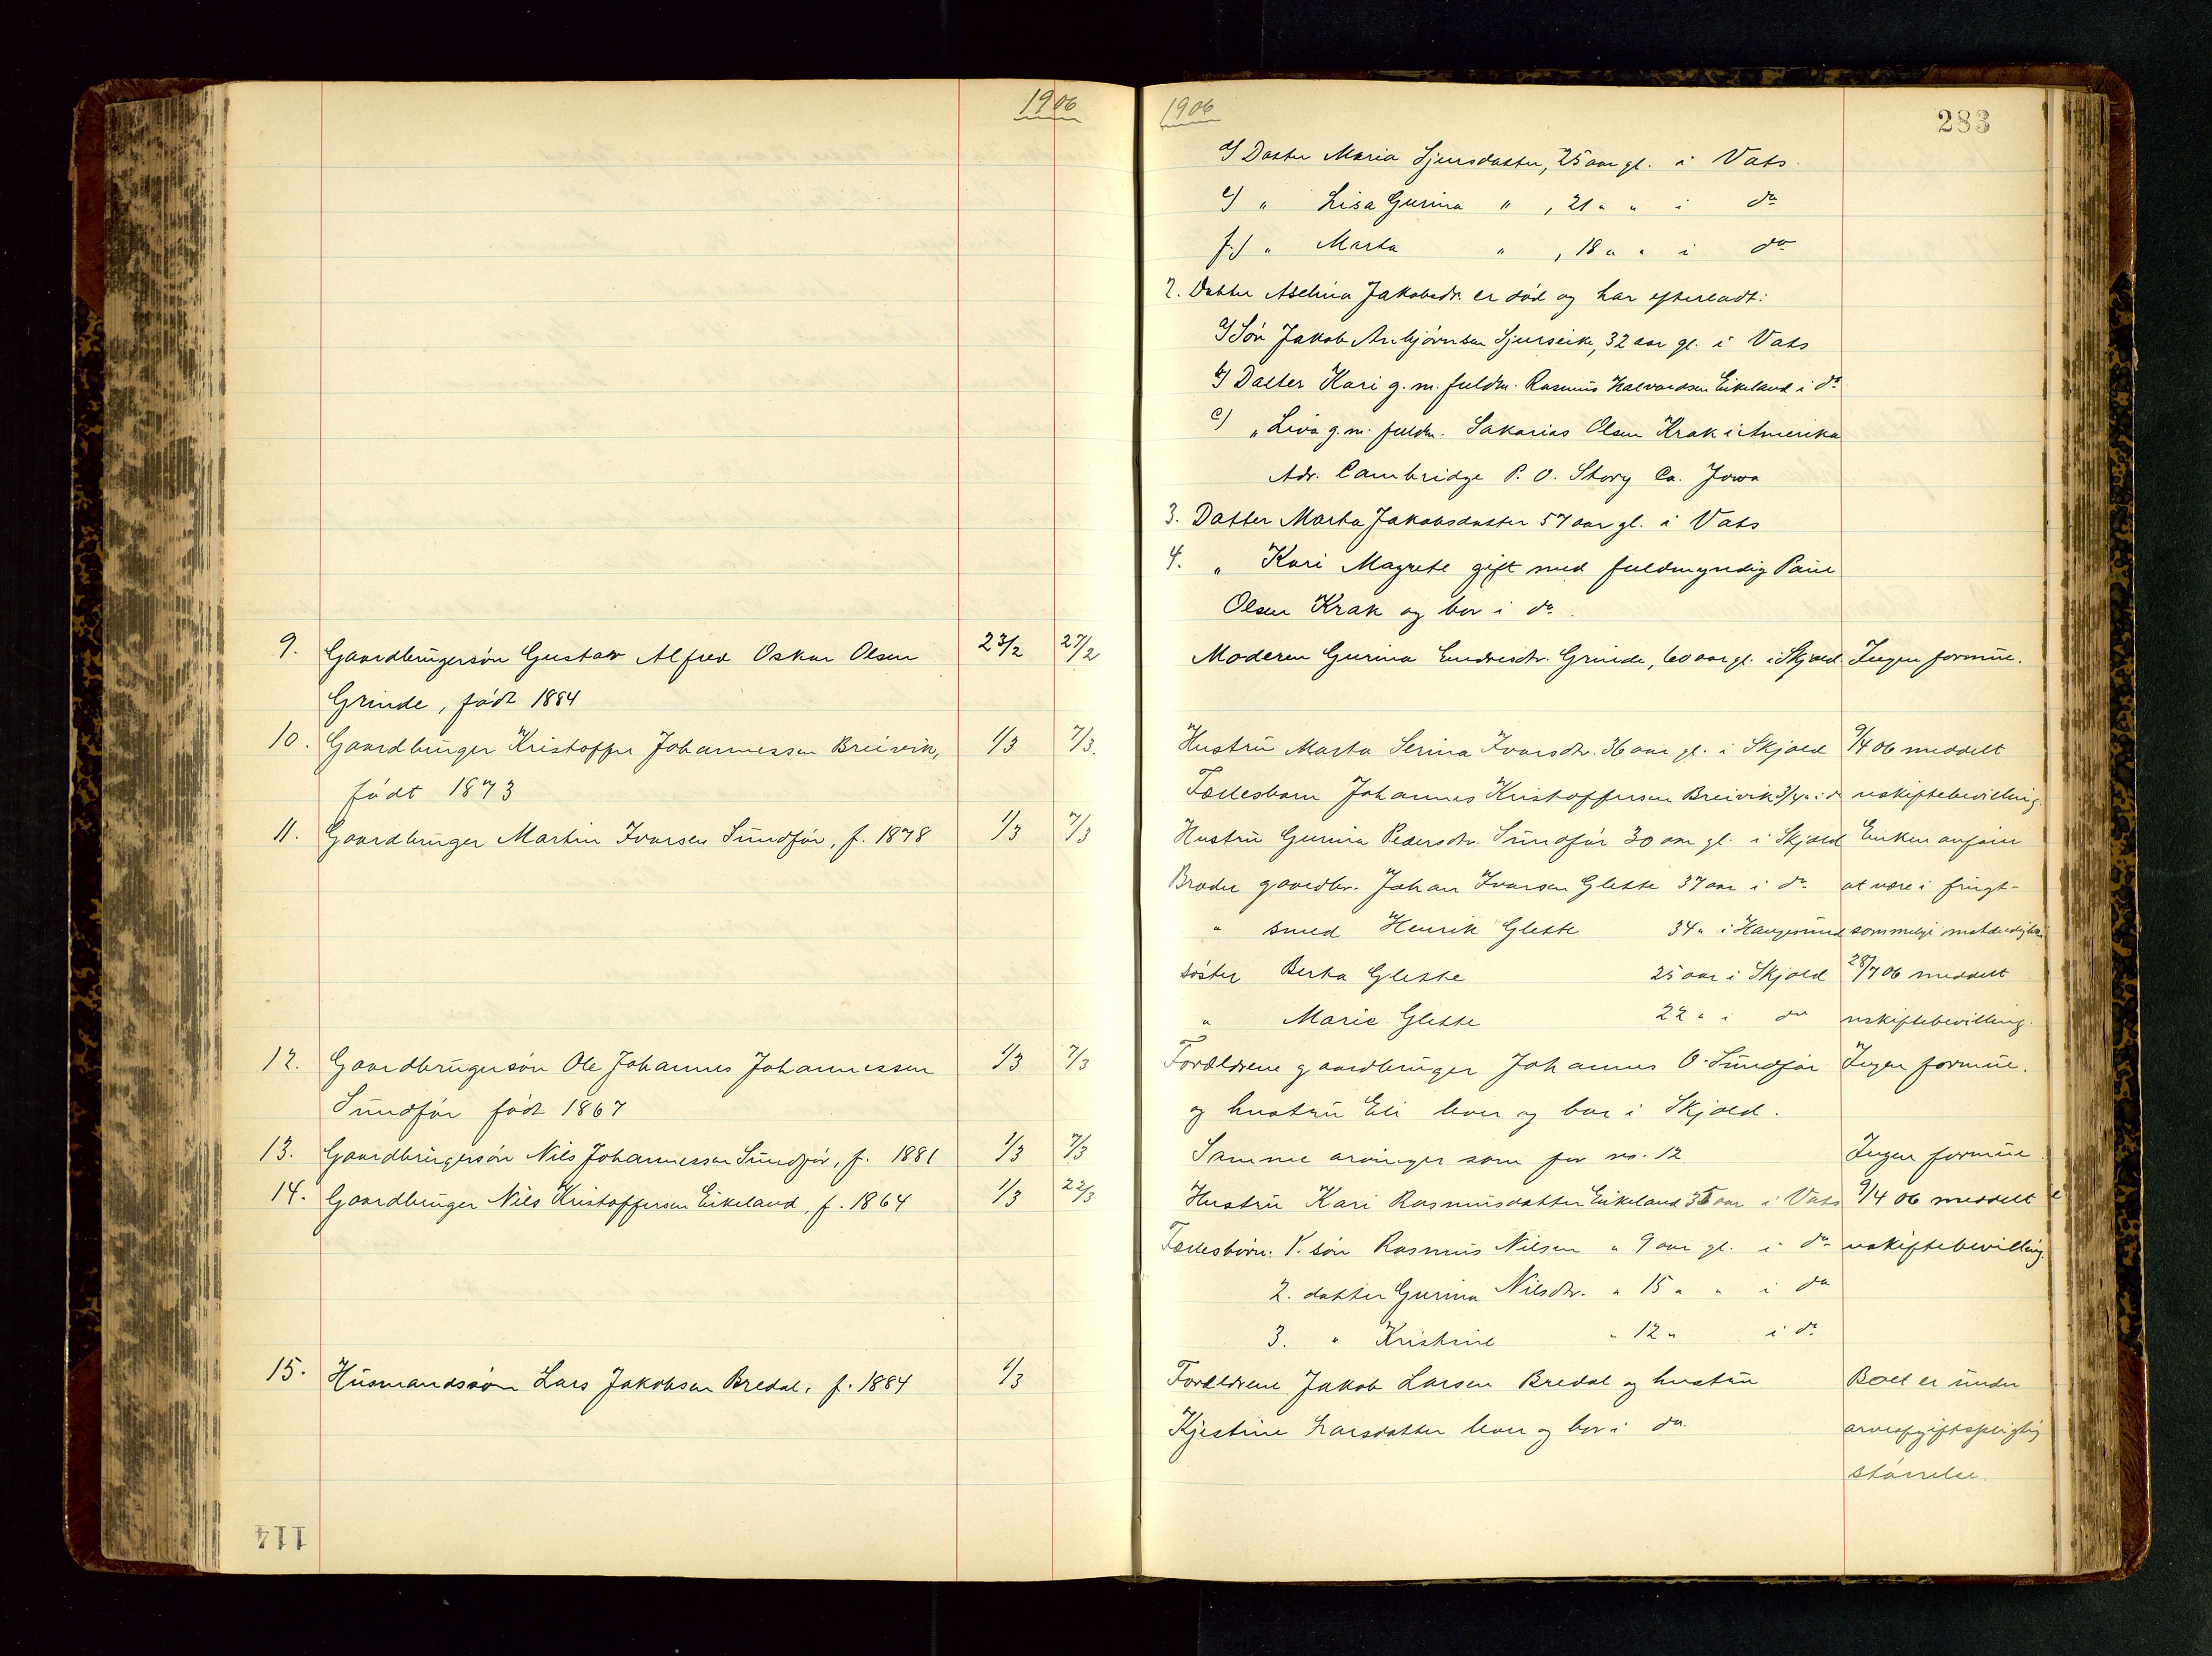 1906
9. Gaardbrugersön Gustav Alfred Oskar Olsen 23/2 27/2
Grinde, födt 1884
10. Gaardbruger Kristoffer Johannessen Breivik, 1/3 7/3.
födt 1873
11. Gaardbruger Martin Ivarsen Sundför, f. 1878 1/3 7/3
12. Gaardbrugersön Ole Johannes Johannessen 1/3 7/3
Sundför födt 1867
13. Gaardbrugersön Nils Johannessen Sundför, f. 1881 1/3 7/3
14. Gaardbruger Nils Kristoffersen Eikeland, f. 1864 1/3 22/3
15. Husmandssön Lars Jakobsen Bredal, f. 1884 1/3
114
1906
283
d) Datter Maria Sjursdatter, 25 aar gl. i Vats.
e) " Lisa Gurina " , 21 " " i do
f.) " Marta " , 18 " " i do
2. Datter Aselina Jakobsdr. er död og har efterladt:
a) Sön Jakob Anbjörnsen Sjurseike, 32 aar gl. i Vats
b) Datter Kari g. m. fuldm. Rasmus Halvordsen Eikeland i do
c) " Liva g. m. fuldm. Sakarias Olsen Krak i Amerika
Adr. Cambridge P. O. Story Co. Jowa
3. Datter Marta Jakobsdatter 57 aar gl. i Vats
4. " Kari Magrete gift med fuldmyndig Paul
Olsen Krak og bor i do.
Moderen Gurina Endresdtr. Grinde, 60 aar gl. i Skjold Ingen formue.
Hustru Marta Serina Ivarsdtr. 36 aar gl. i Skjold 9/4 06 meddelt
Fællesbarn Johannes Kristoffersen Breivik 3/4 a i do uskiftebevilling.
Hustru Gurina Pedersdtr. Sundför 30 aar gl. i Skjold Enken
Broder gaardbr. Johan Ivarsen Glette 37 aar i do at være i frugt-
" smed Henrik Glette 34 " i Haugesund sommelige
söster Berta Glette 25 aar i Skjold 28/7 06 meddelt
" Marie Glette 22 " i do uskiftebevilling.
Forældrene gaardbruger Johannes O. Sundför Ingen formue.
og hustru Eli lever og bor i Skjold.
Samme arvinger som for no. 12 Ingen formue.
Hustru Kari Rasmusdatter Eikeland 35 aar i Vats 9/4 06 meddelt
Fællesbörn: 1. sön Rasmus Nilsen " 9 aar gl. i do uskiftebevilling.
2. datter Gurina Nilsdtr. " 15 " " i do
3. " Kristine " 12 " i do
Forældrene Jakob Larsen Bredal og hustru Boet er under
Kjestine Larsdatter lever og bor i do arveafgiftspligtig
störrelse.